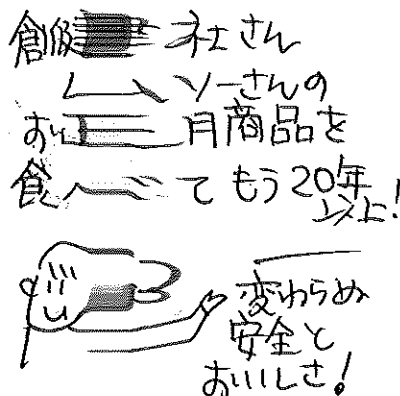 創 社さん
ソーさんの
お 月商品を
食べて もう20年
以上!
変わらぬ
安全と
おいしさ!